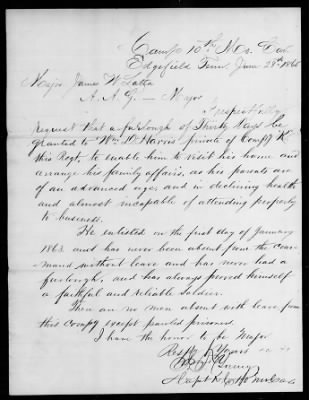 Camp 10th Mo. Cav
Edgefield Tenn, June 28th 1865
Major James W Latta
A. A. G. — Major
I respectfully
request that a furlough of Thirty days be
granted to Wm D Harris private of Compy K
this Regt, to enable him to visit his home and
arrange his family affairs, as his parents are
of an advanced age, and in declining health
and almost incapable of attending properly
to business.
He enlisted on the first day of January
1863. and has never been absent from the com-
mand without leave and has never had a
furlough, and has always proved himself
a faithful and reliable Soldier.
There are no men absent with leave from
this Compy except paroled prisoners.
I have the honor to be Major
Resp Yours
Capt K Co 10 Mo Cav